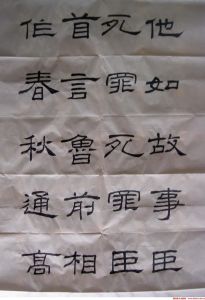 他如故事臣
死罪死罪臣
首言魯前相
春秋通高